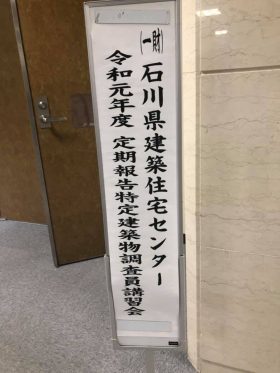 (一財)石川県建築住宅センター
令和元年度 定期報告特定建築物調査員講習会